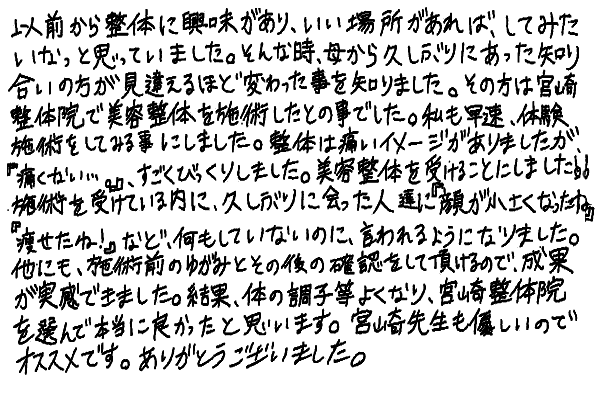 以前から整体に興味があり、いい場所があれば、してみた
いなっと思っていました。そんな時、母から久しぶりにあった知り
合いの方が見違えるほど変わった事を知りました。その方は宮崎
整体院で美容整体を施術したとの事でした。私も早速、体験
施術をしてみる事にしました。整体は痛いイメージがありましたが、
『痛くない…。』、すごくびっくりしました。美容整体を受けることにしました!!
施術を受けている内に、久しぶりに会った人達に『顔が小さくなったね』
『痩せたね!』など、何もしていないのに、言われるようになりました。
他にも、施術前のゆがみとその後の確認をして頂けるので、成果
が実感できました。結果、体の調子等よくなり、宮崎整体院
を選んで本当に良かったと思います。宮崎先生も優しいので
オススメです。ありがとうございました。